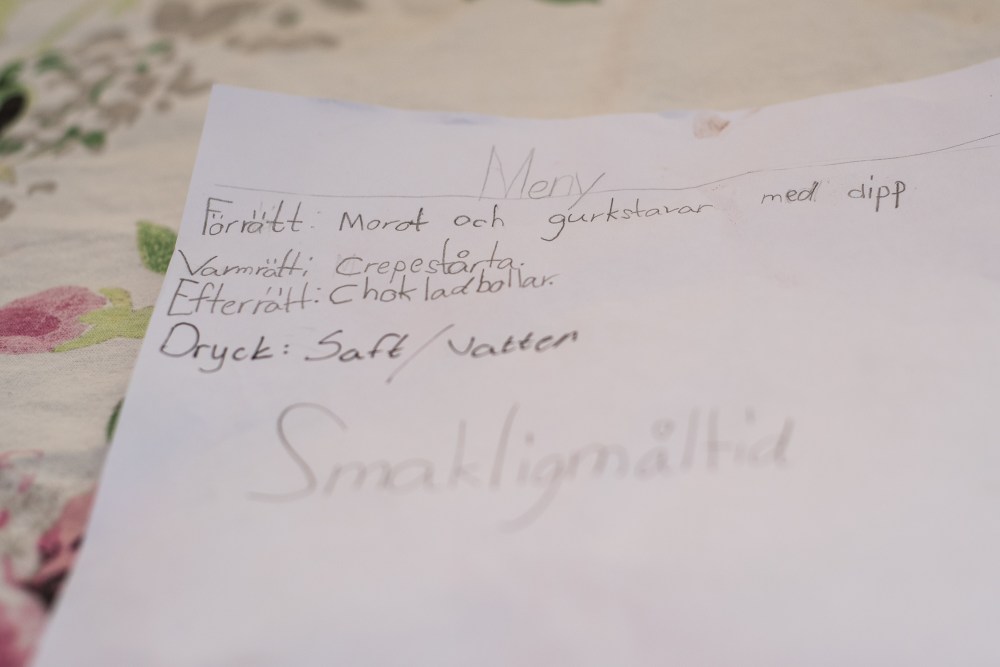 Meny
Förrätt: Morot och gurkstavar med dipp
Varmrätt: Crepestårta.
Efterrätt: Chokladbollar.
Dryck: Saft/Vatten
Smakligmåltid